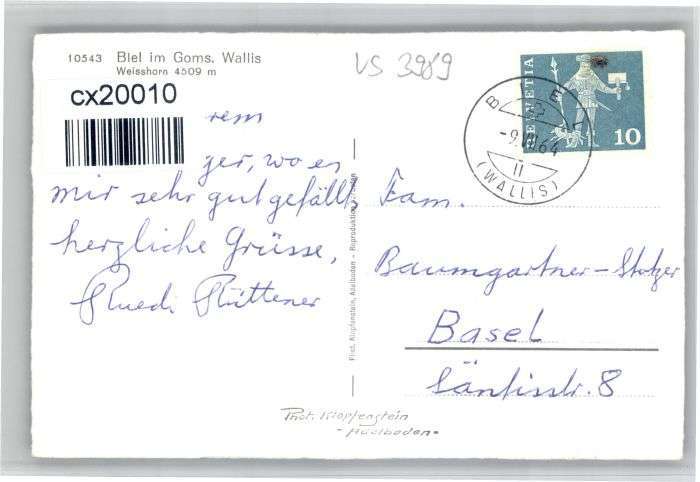 10543 Biel im Goms. Wallis
Weisshorn 4509 m
cx20010
rem
ger, wo es
mir sehr gut gefällt,
herzliche Grüsse,
Ruedi Rüttener
VS 3989
HELVETIA
10
BIEL
-9.VII.64
(WALLIS)
Fam.
Baumgartner-Stolzer
Basel
Säntisstr. 8
Phot. Klopfenstein, Adelboden - Reproduktion
Phot. Klopfenstein
- Adelboden -